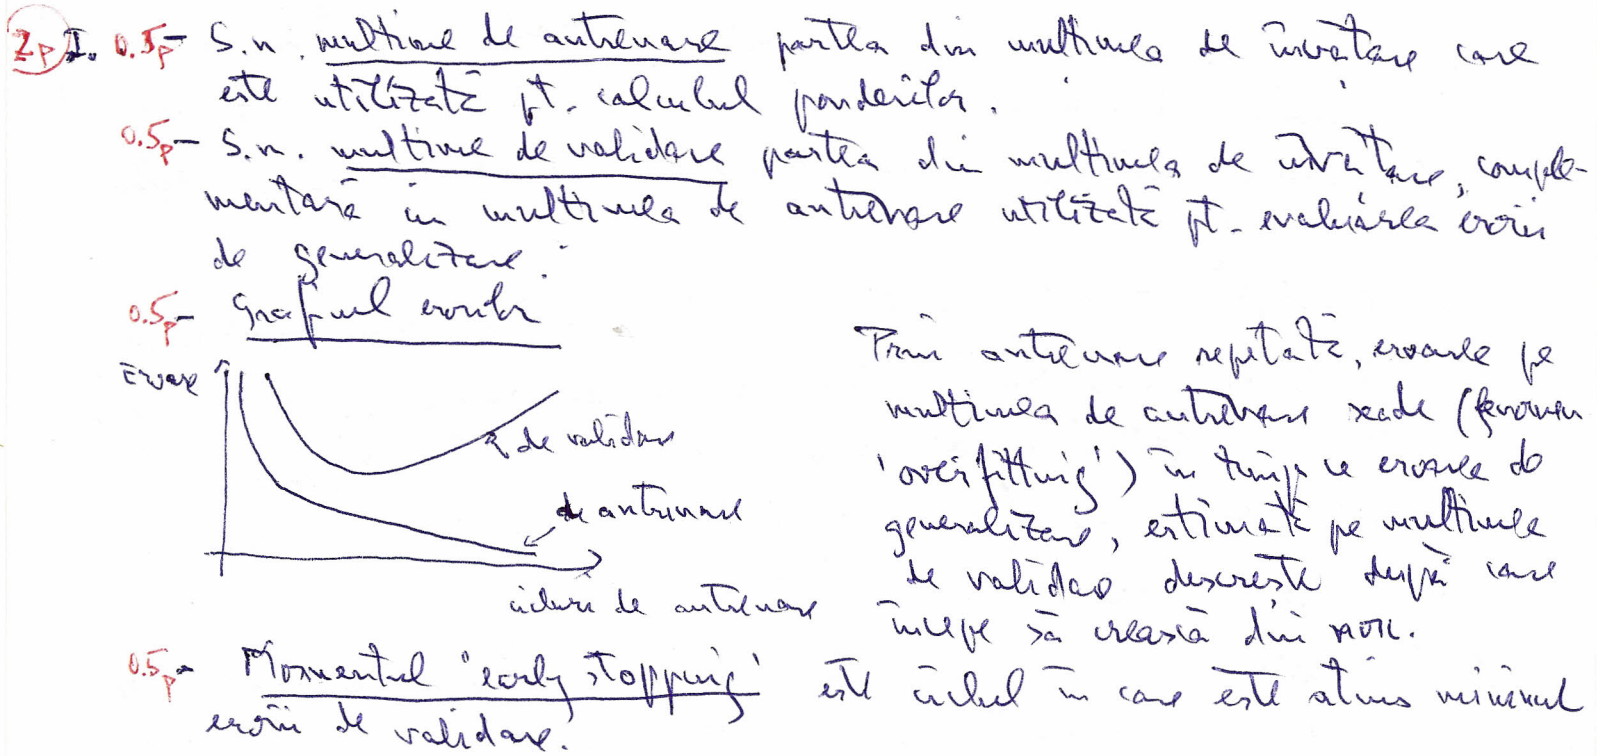 2p I. 0.5p- S.n. multime de antrenare partea din multimea de învățare care
este utilizată pt. calculul ponderilor.
0.5p- S.n. multime de validare partea din multimea de învățare, comple-
mentară cu multimea de antrenare utilizată pt. evaluarea erorii
de generalizare.
0.5p- Graficul erorilor
Eroare
de validare
de antrenare
cicluri de antrenare
Prin antrenare repetată, eroarea pe
multimea de antrenare scade (fenomen
'overfitting') în timp ce eroarea de
generalizare, estimată pe multimea
de validare descrește după care
începe să crească din nou.
0.5p- Momentul 'early stopping' este ciclul în care este atins minimul
erorii de validare.